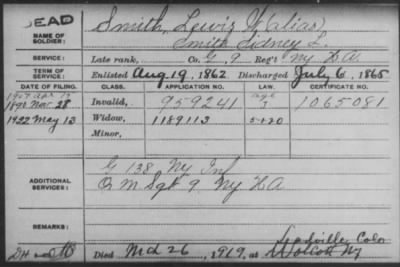 DEAD Smith, Lewis W (alias)
NAME OF SOLDIER: Smith Sidney L.
SERVICE: Late rank, Co. G, 9 Reg't NY H A
TERM OF SERVICE: Enlisted Aug 19, 1862 Discharged July 6, 1865
DATE OF FILING. CLASS. APPLICATION NO. LAW. CERTIFICATE NO.
1907 Apr
1890 Nov. 28 Invalid, 959241 age 1065081
1922 May 13 Widow, 1189113 5-1-20
Minor,
ADDITIONAL SERVICES: G 138 NY Inf
Q M Sgt 9 NY H A
REMARKS:
Leadville Colo
Died Mch 26, 1919, at Wolcott NY